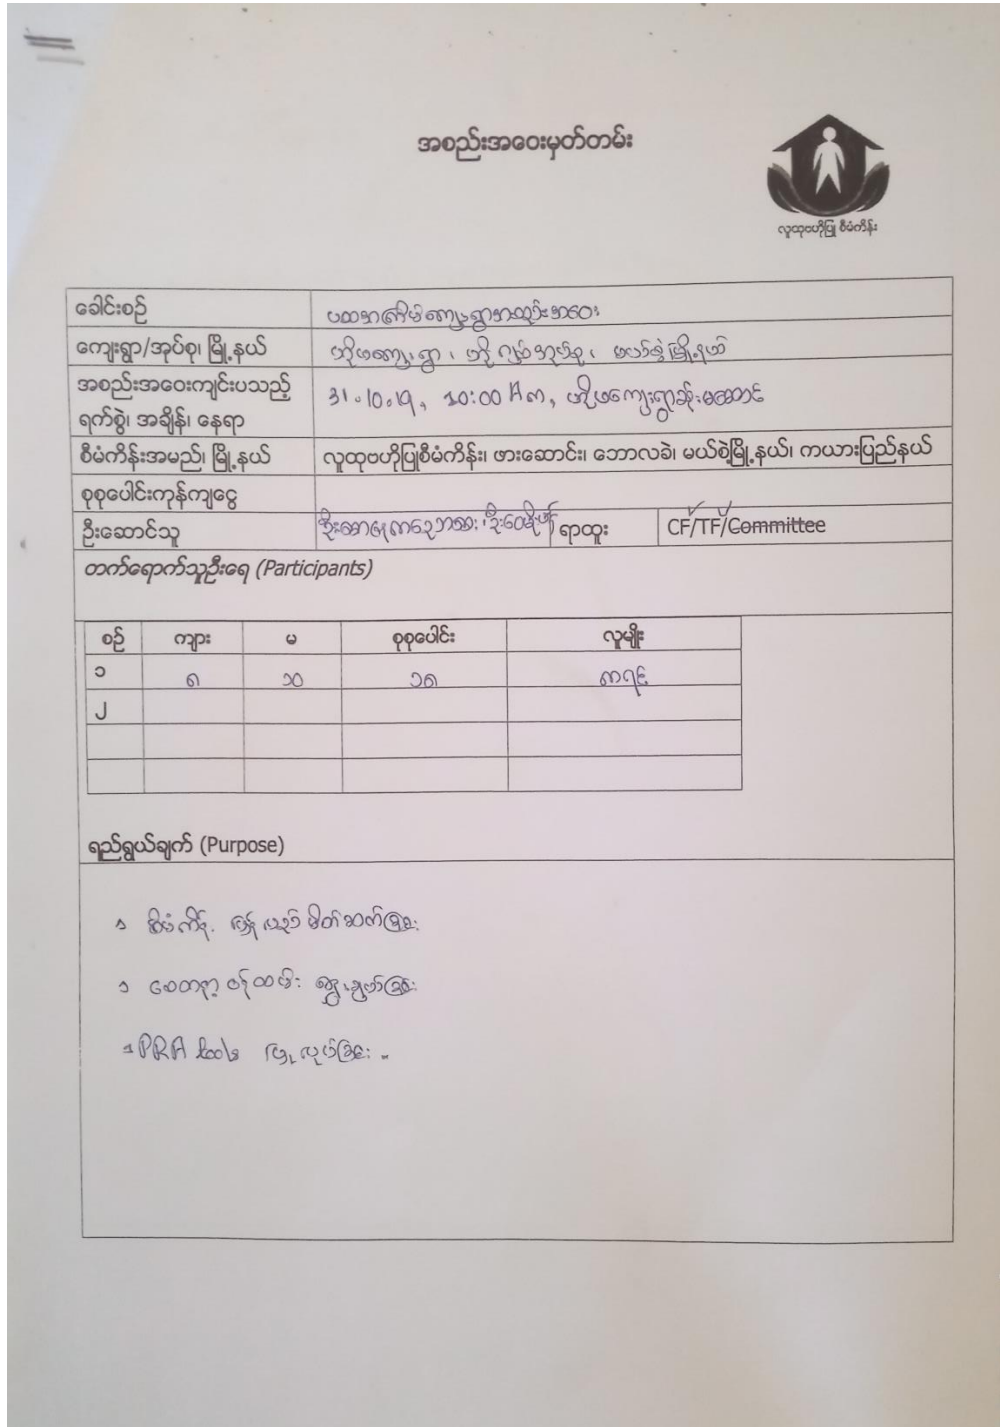 အစည်းအဝေးမှတ်တမ်း
လူထုဗဟိုပြု စီမံကိန်း
ခေါင်းစဉ် ပထမအကြိမ်ကျေးရွာအထူးအဝေး
ကျေးရွာ/အုပ်စု၊ မြို့နယ် ရွာ၊ အုပ်စု၊ မယ်စဲ့မြို့နယ်
အစည်းအဝေးကျင်းပသည့် 31.10.19, 10:00 Am,
ရက်စွဲ၊ အချိန်၊ နေရာ
စီမံကိန်းအမည်၊ မြို့နယ် လူထုဗဟိုပြုစီမံကိန်း၊ ဖားဆောင်း၊ ဘောလခဲ၊ မယ်စဲ့မြို့နယ်၊ ကယားပြည်နယ်
စုစုပေါင်းကုန်ကျငွေ
ဦးဆောင်သူ ရာထူး CF/TF/Committee
တက်ရောက်သူဦးရေ (Participants)
စဉ် ကျား မ စုစုပေါင်း လူမျိုး
၁ ၈ ၁၀ ၁၈ ကရင်
၂
ရည်ရွယ်ချက် (Purpose)
၁ စီမံကိန်း ပြန်လည်မိတ်ဆက်ခြင်း
၁ စေတနာ့ဝန်ထမ်း ရွေးချယ်ခြင်း
၁ PRA tools ပြုလုပ်ခြင်း